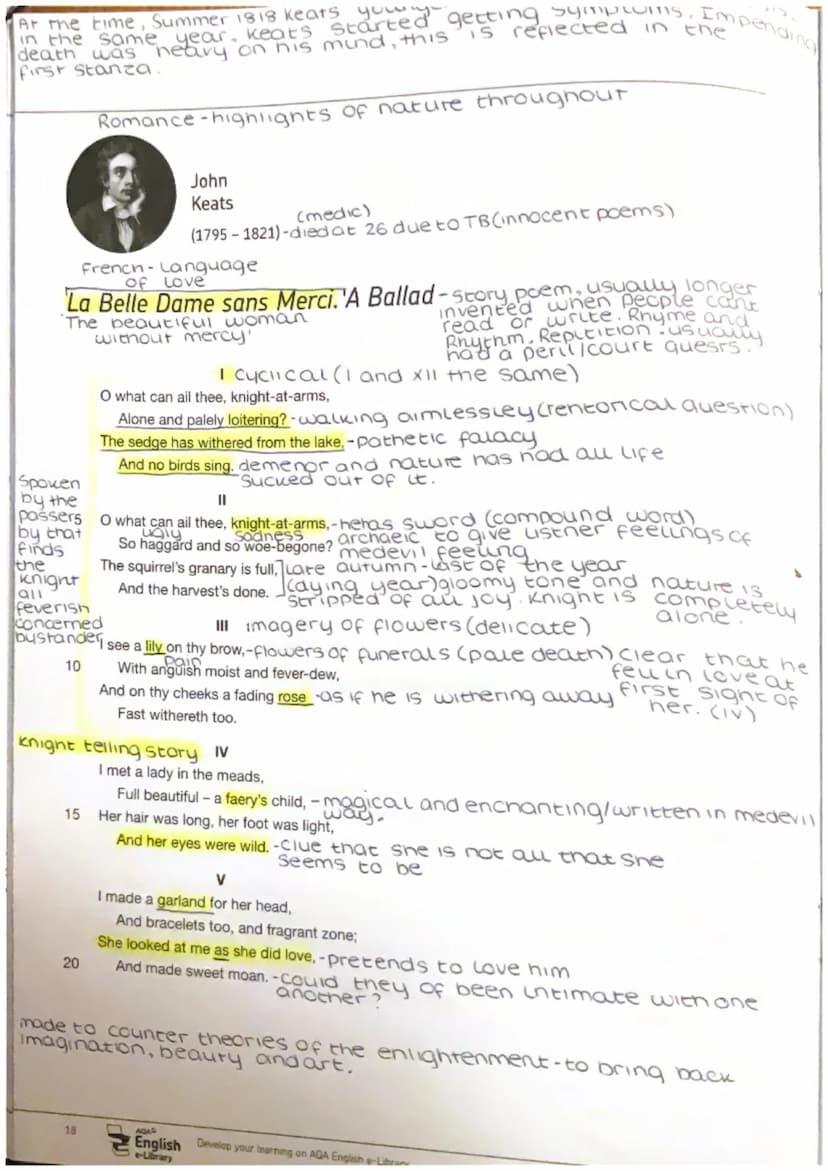 At the time, Summer 1818 Keats
in the same year. Keats started getting symptoms. Impending
death was heavy on his mind, this is reflected in the
first stanza.
Romance - highlights of nature throughout
John
Keats
(medic)
(1795 – 1821) - died at 26 due to TB (innocent poems)
French - Language
of love
'La Belle Dame sans Merci.' A Ballad - Story poem, usually longer
'The beautiful woman
without mercy'
invented when people cant
read or write. Rhyme and
Rhythm. Repitition - usually
had a peril/court quests.
I cyclical (I and XII the same)
O what can ail thee, knight-at-arms,
Alone and palely loitering? - walking aimlessley (rehtorical question)
The sedge has withered from the lake, - pathetic falacy
And no birds sing. demenor and nature has had all life
sucked out of it.
Spoken
by the
passers
by that
finds
the
knight
all
feverish
concerned
bystander
II
O what can ail thee, knight-at-arms, - hehas sword (compound word)
ugly sadness archaeic to give ustner feelings of
So haggard and so woe-begone? medevil feeling
The squirrel's granary is full, late autumn - last of the year
And the harvest's done. (dying year) gloomy tone and nature is
stripped of all joy. Knight is completely
alone.
III imagery of flowers (delicate)
I see a lily on thy brow, - flowers of funerals (pale death) clear that he
pain
fell in love at
10 With anguish moist and fever-dew,
first sight of
And on thy cheeks a fading rose - as if he is withering away
her. (IV)
Fast withereth too.
Knight telling story IV
I met a lady in the meads,
Full beautiful – a faery's child, - magical and enchanting/written in medevil
way.
15 Her hair was long, her foot was light,
And her eyes were wild. - clue that she is not all that she
seems to be
V
I made a garland for her head,
And bracelets too, and fragrant zone;
She looked at me as she did love, - pretends to love him
20 And made sweet moan. - could they of been intimate with one
another?
made to counter theories of the enlightenment - to bring back
imagination, beauty and art.
18
AQA
English
e-Library
Develop your learning on AQA English e-Library